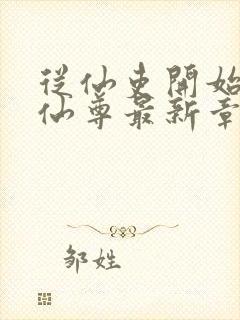 從仙吏開始
仙尊最新章
邹姓